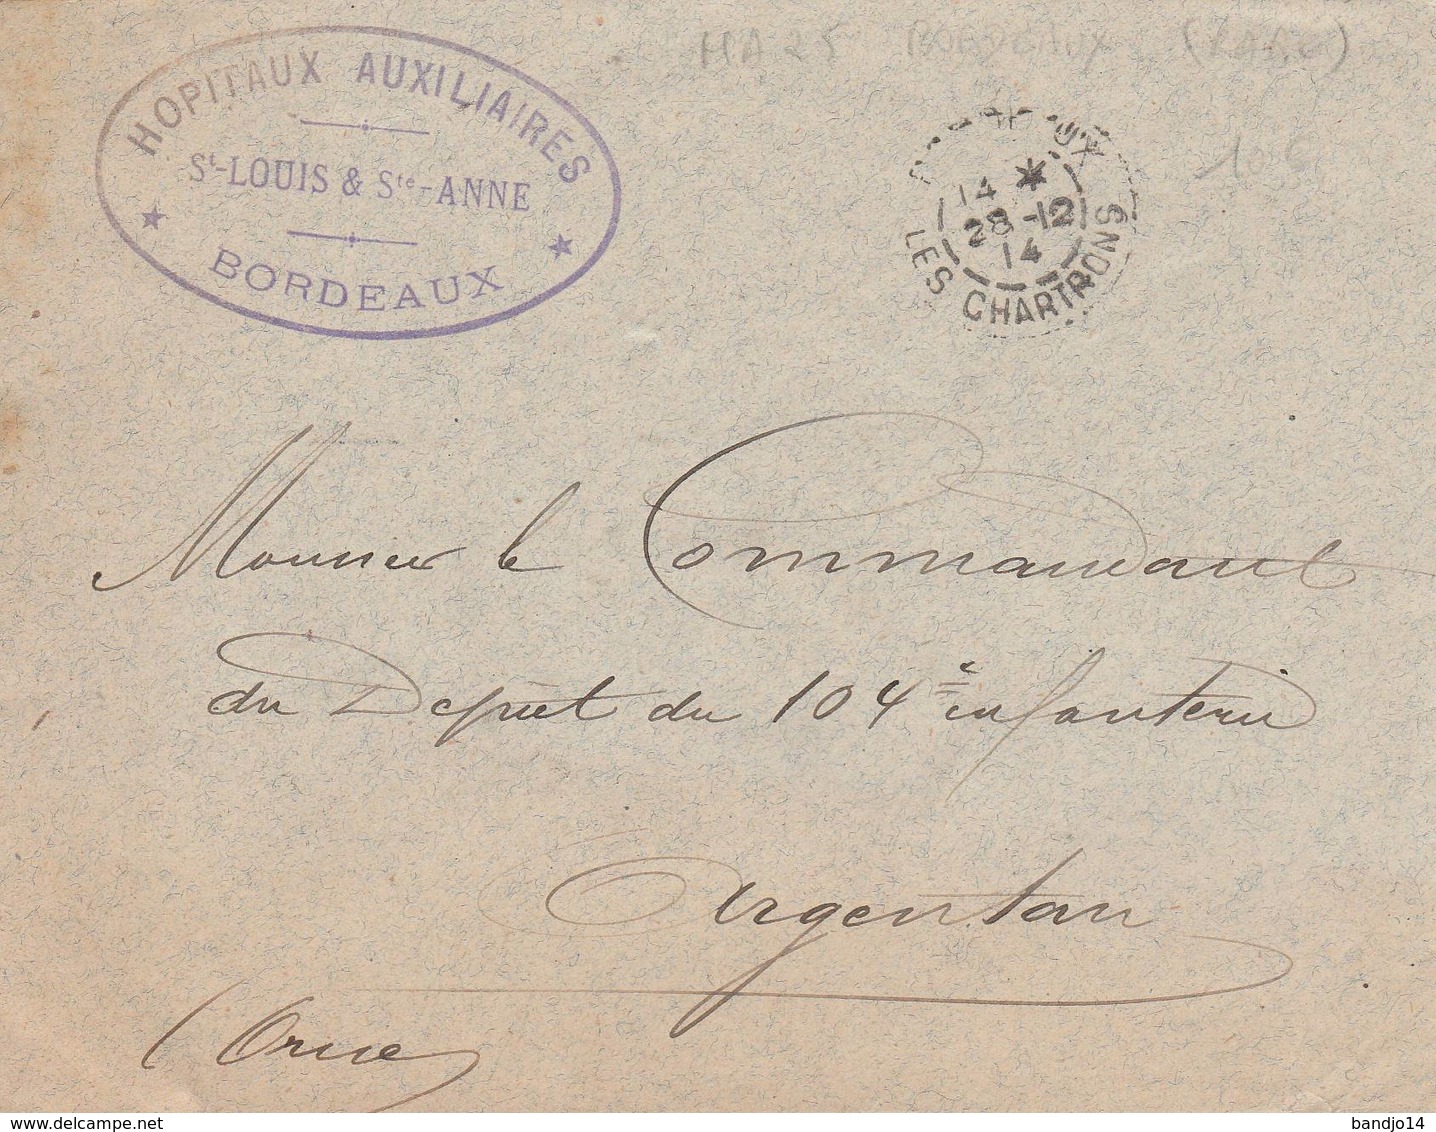 HA 25 BORDEAUX (RARE)
10 €
HOPITAUX AUXILIAIRES
St-LOUIS & Ste-ANNE
BORDEAUX
LES CHARTRONS
14 *
28 -12
14
Monsieur le Commandant
du Dépôt du 104e infanterie
Argentan
(Orne)
www.delcampe.net
bandjo14